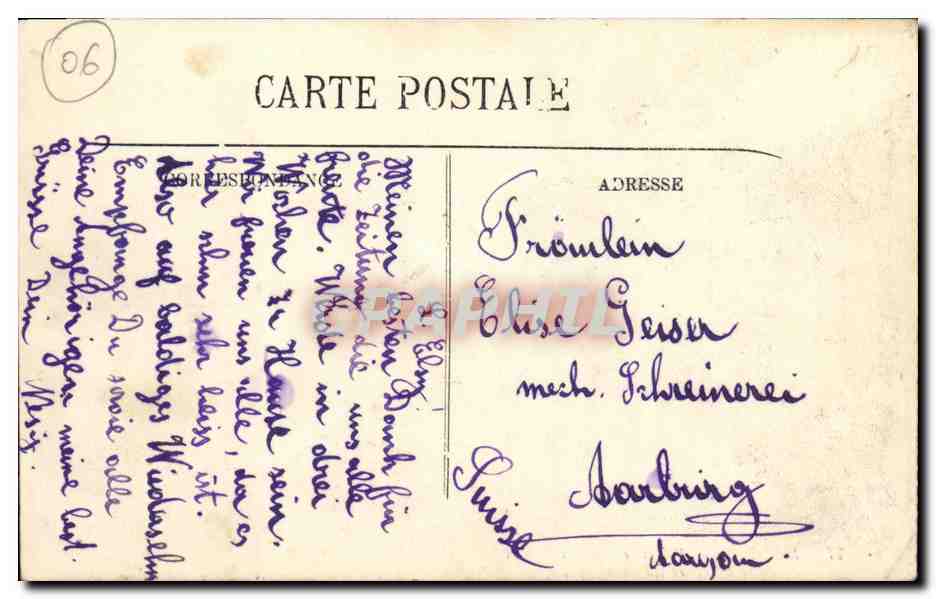 06
CARTE POSTALE
CORRESPONDANCE
ADRESSE
L. Elm!
Meinen besten Dank für
die Zeitung die uns alle
freute. Werde in drei
Wochen zu Hause sein.
Wir freuen uns alle, da es
hier schon sehr heiss ist.
Also auf baldiges Wiedersehn
Empfange Du sowie alle
Deine Angehörigen meine best
Grüsse Dein
Fräulein
Elise Geiser
mech. Schreinerei
Aarburg
Aargau.
Suisse
CPAPHIL